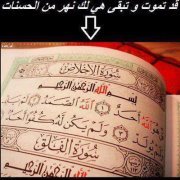 قد تموت و تبقى هي لك نهر من الحسنات
سورة الإخلاص
بسم الله الرحمن الرحيم
الله أحد
الله الصمد
ولم يكن له كفوا أحد
سورة الفلق
بسم الله الرحمن الرحيم